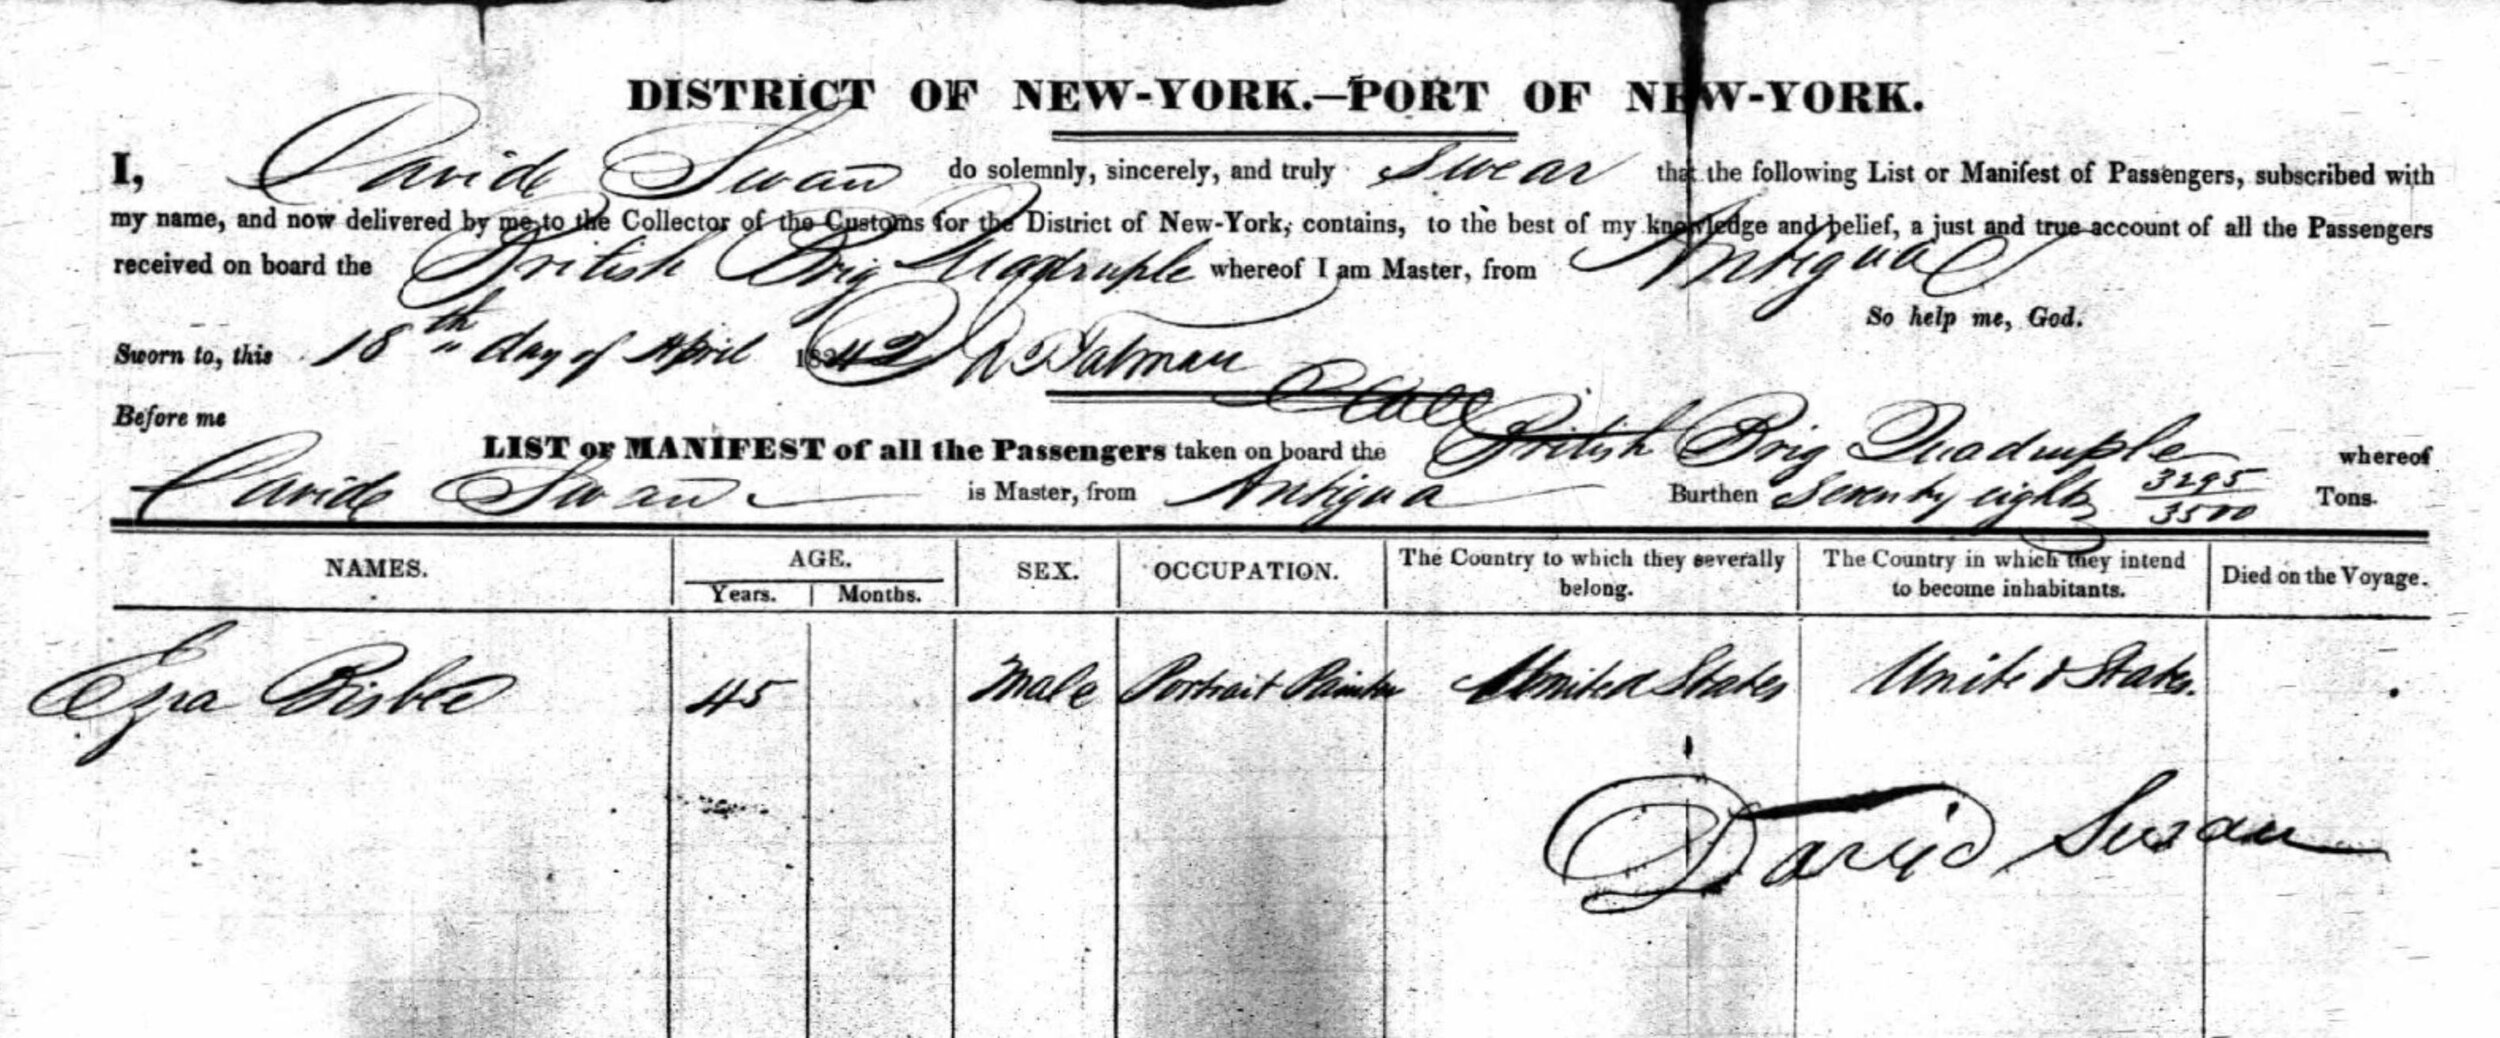 DISTRICT OF NEW-YORK.—PORT OF NEW-YORK.
I, David Swan do solemnly, sincerely, and truly Swear that the following List or Manifest of Passengers, subscribed with
my name, and now delivered by me to the Collector of the Customs for the District of New-York, contains, to the best of my knowledge and belief, a just and true account of all the Passengers
received on board the British Brig Quadruple whereof I am Master, from Antigua
So help me, God.
Sworn to, this 18th day of April 1842
Before me
LIST or MANIFEST of all the Passengers taken on board the British Brig Quadruple whereof
David Swan is Master, from Antigua Burthen Seventy eight 3295/3500 Tons.
NAMES. AGE. SEX. OCCUPATION. The Country to which they severally belong. The Country in which they intend to become inhabitants. Died on the Voyage.
Years. Months.
Ezra Bisbee 45 Male Portrait Painter United States United States.
David Swan